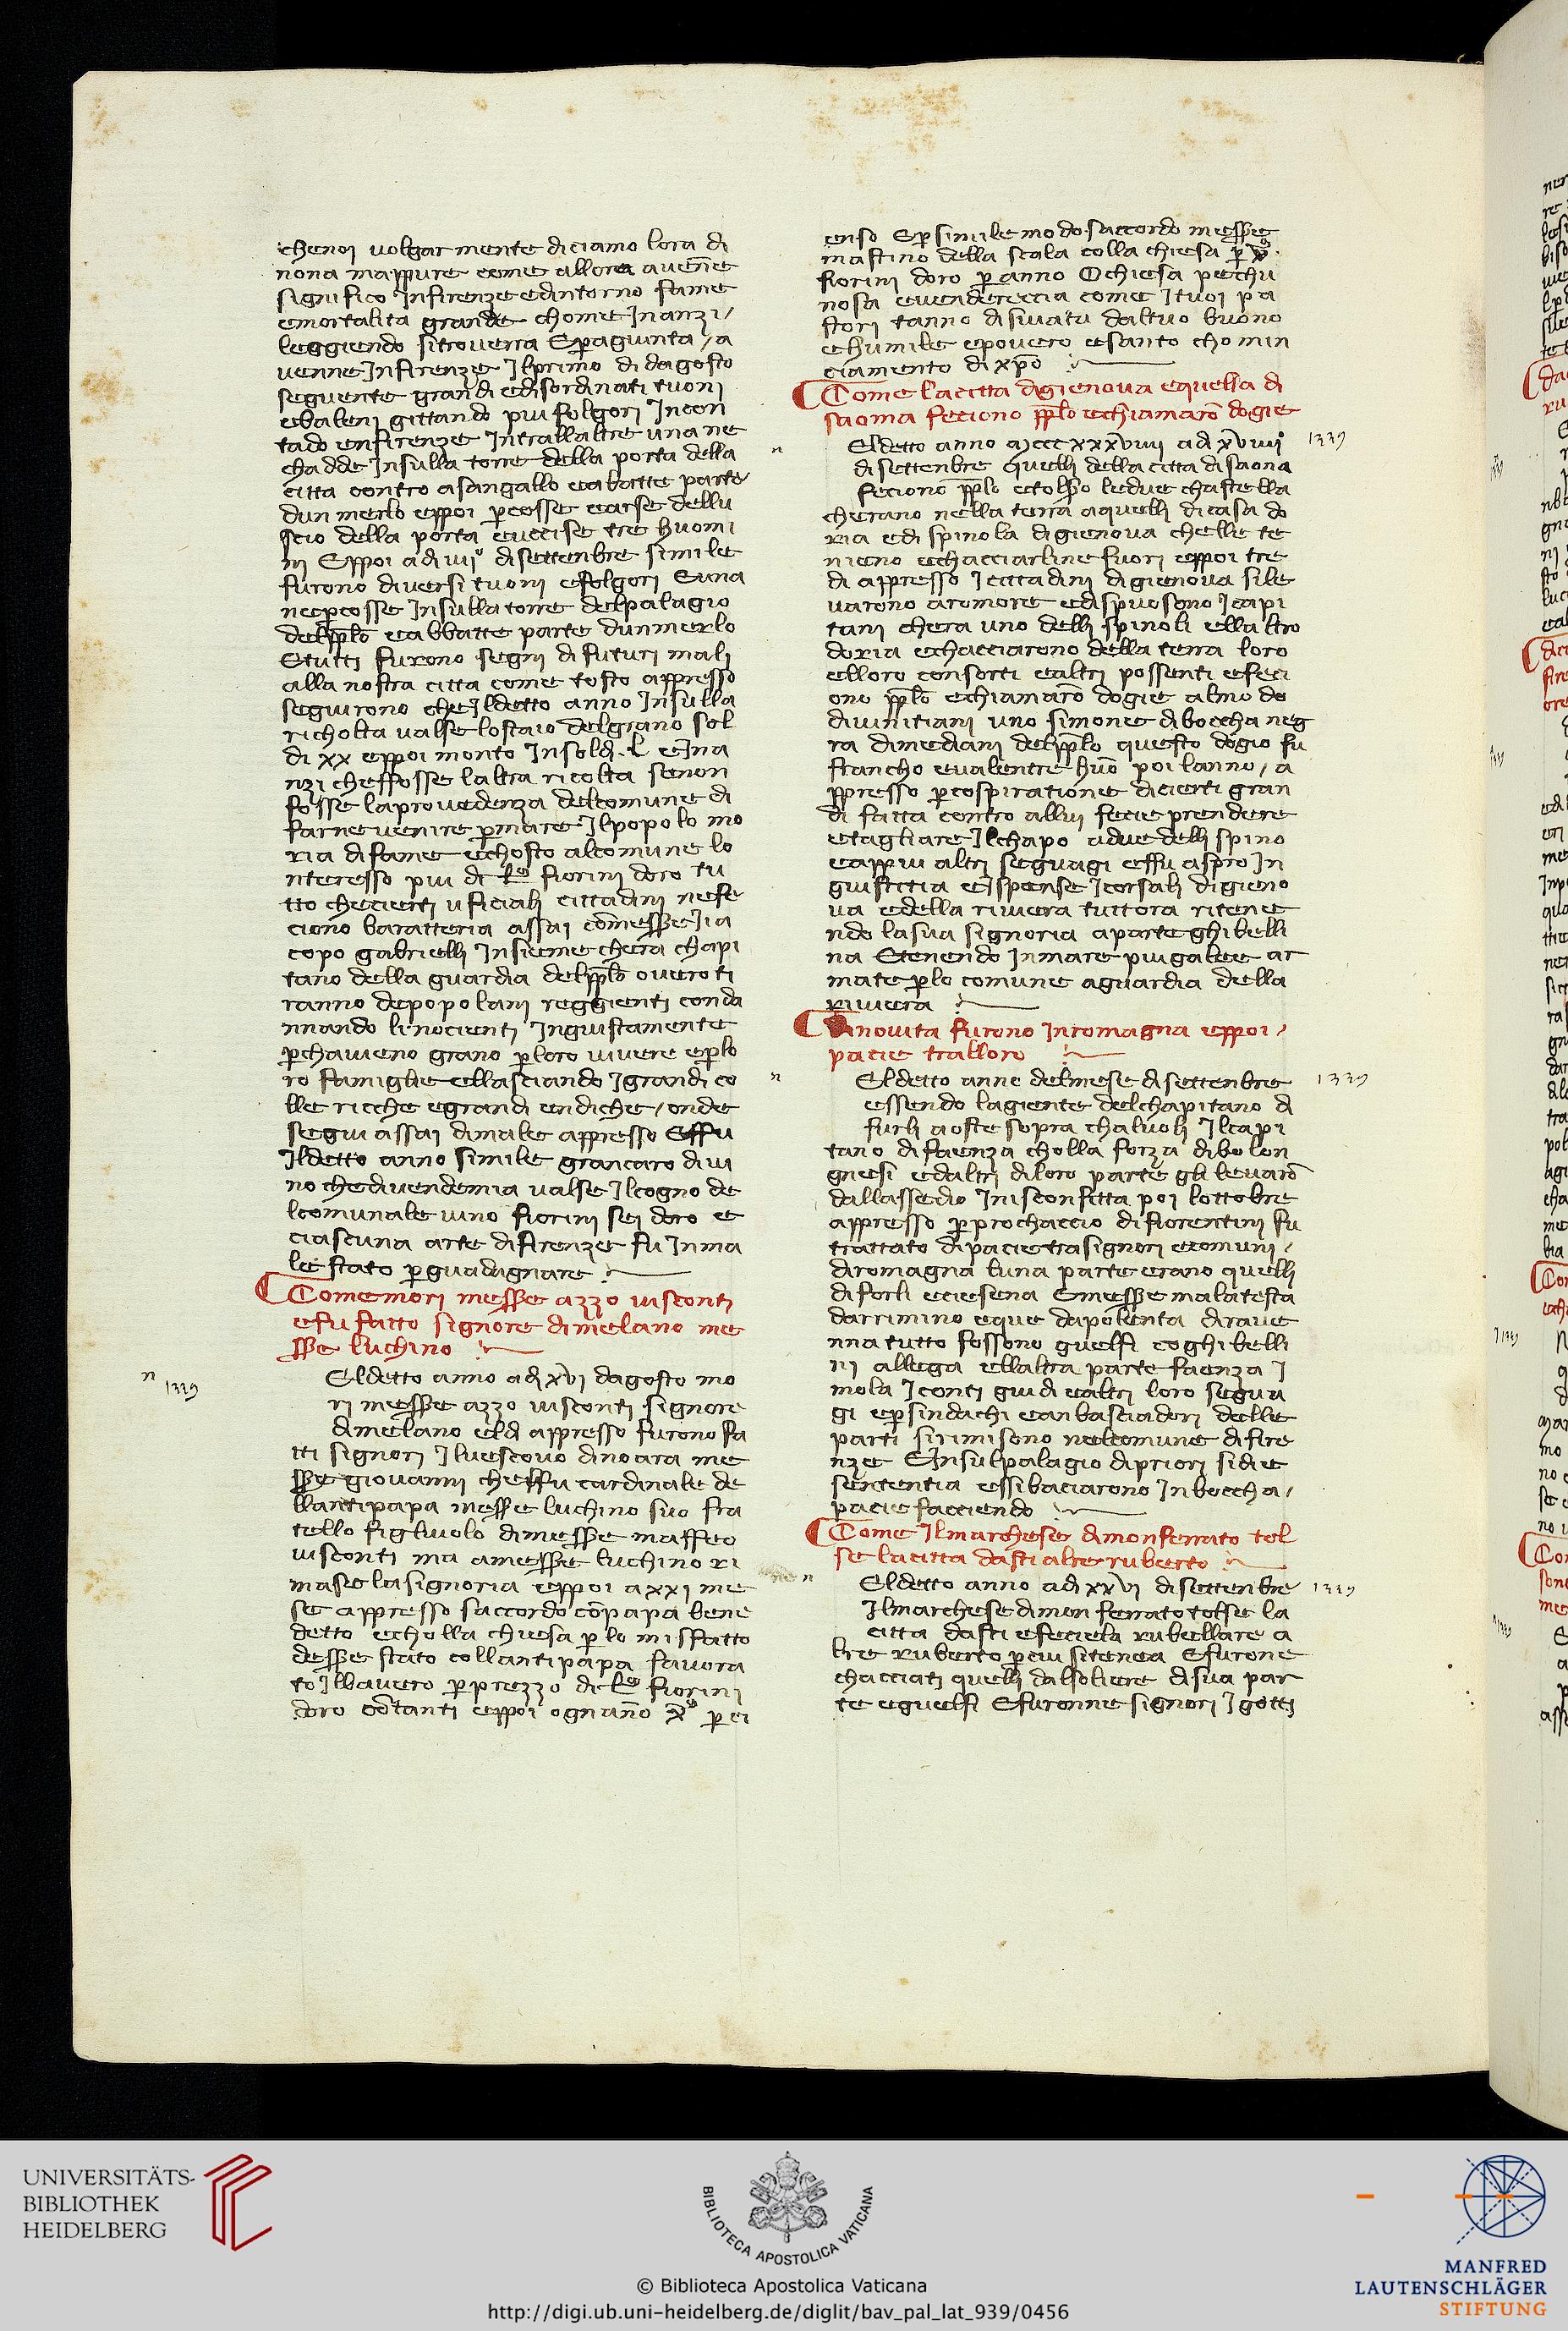 chenoi volgarmente diciamo lora di
nona mappure come allora avenne
significo Infirenze edintorno fame
emortalita grande chome Inanzi /
leggiendo sitroverra Eperagiunta / a
venne Infirenze Ilprimo di dagosto
seguente grandi edisordinati tuoni
ebaleni gittando piu folgori Incon
tado enfirenze Intrallaltre una ne
chadde Insulla torre della porta della
citta contro asangallo eabatte parte
dun merlo eppoi percosse earse dellu
scio della porta euccise tre huomi
ni Eppoi adi vijº di settenbre simile
furono diversi tuoni efolgori Euna
nepercosse Insulla torre delpalagio
delpplo eabbatte parte dunmerlo
Etutti furono segni di futuri mali
alla nostra citta come tosto appresso
seguirono che Ildetto anno Insulla
richolta valse lostaio delgrano sol
di xx eppoi monto Insoldi .L. eIna
nzi cheffosse laltra ricolta senon
fosse laprovedenza delcomune di
farne venire permare Ilpopolo mo
ria difame echosto alcomune lo
nteresso piu di Lº fiorini doro tu
tto checierti uficiali cittadini nefe
ciono baratteria assai comesspe Ja
copo gabrielli Insieme chera chapi
tano della guardia delpplo overo ti
ranno depopolani reggienti conda
nnando linocienti Ingiustamente
perchavieno grano perloro vivere eperlo
ro famiglie ellasciando Igrandi co
lle ricche egrandi endiche / onde
segui assai dimale appresso Effu
Ildetto anno simile grancaro divi
no chedivendemia valse Ilcogno de
lcomunale vino fiorini sei doro e
ciascuna arte difirenze fu Inma
le stato perguadagnare
Comemori messpe azzo visconti
efu fatto signore dimelano me
sspe luchino
n 1339
Eldetto anno adi xvi dagosto mo
ri messpe azzo visconti signore
dimelano eldi appresso furono fa
tti signori Ilvescovo dinoara me
sspe giovanni cheffu cardinale de
llantipapa messe luchino suo fra
tello figliuolo dimesspe maffeo
visconti ma amesspe luchino ri
mase lasignoria eppoi axxi me
se appresso saccordo cōpapa bene
detto echolla chiesa perlo misfatto
desspe stato collantipapa favora
to Ilbavero perprezzo di Lº fiorini
doro cōtanti eppoi ognanno xº perci
enso Epersimilemodo saccordo messpe
mastino della scala colla chiesa per vº
fiorini doro per anno Ochiesa pechu
nosa evendereccia come Ituoi pa
stori tanno disviatu daltuo buono
ehumile epovero esanto chomin
ciamento di xpo
Come lacitta digienova equella di
saona feciono pplo echiamarō dogie
n
Eldetto anno Mcccxxxviiii adi xviiii 1339
disettenbre quelli della citta disaona
feciono pplo etolsero ledue chastella
cherano nella terra aquelli dicasa do
ria edispinola digienova chelle te
nieno echacciarline fuori eppoi tre
di appresso Icittadini digienova sile
varono aromore edispuosono Icapi
tani chera uno delli spinoli ellaltro
doria echacciarono della terra loro
elloro consorti ealtri possenti efeci
ono pplo echiamarō dogie almo do
divinitiani uno simone dibocchaneg
ra dimediani delpplo questo dogio fu
francho evalentre huō poi lanno / a
ppresso percospiratione dicierti gran
di fatta contro allui fecie prendere
etagliare Ilchapo adue delli spino
eappiu altri seguagi effu aspro In
giustitia eIspense Icorsali digieno
va edella riviera tuttora ritene
ndo lasua signoria aparte ghibelli
na Etenendo Inmare piugalee ar
mate perlo comune aguardia della
riviera
novita furono Inromagna eppoi /
pacie tralloro
n
Eldetto anno delmese disettenbre 1339
essendo lagiente delchapitano di
furli aoste sopra chalvoli Ilcapi
tano difaenza cholla forza dibolon
gnesi edaltri diloro parte gli levarō
dallassedio Inisconfitta poi lottobre
appresso perprochaccio difiorentini fu
trattato dipacie trasignori ecomuni /
diromagna luna parte erano quelli
diforli eciesena Emesspe malatesta
darrimino eque dapolenta dirave
nna tutto fossono guelfi coghibelli
ni allega ellaltra parte faenza I
mola Iconti guidi ealtri loro segua
gi epersindachi eanbasciadori delle
parti sirimisono nelcomune difire
nze EInsulpalagio dipriori sidie
sententia essibaciarono Inboccha /
pacie facciendo
Come Ilmarchese dimonferrato tol
se lacitta dasti alreruberto
n
Eldetto anno adi xxvi disettenbre 1339
Ilmarchese dimonferrato tolse la
citta dasti efeciela rubellare a
lre ruberto percui sitenea Efurone
chacciati quelli dalsoliere disua par
te eguelfi Efuronne signori Igotti
UNIVERSITÄTS-
BIBLIOTHEK
HEIDELBERG
BIBLIOTECA APOSTOLICA VATICANA
© Biblioteca Apostolica Vaticana
http://digi.ub.uni-heidelberg.de/diglit/bav_pal_lat_939/0456
MANFRED
LAUTENSCHLÄGER
STIFTUNG